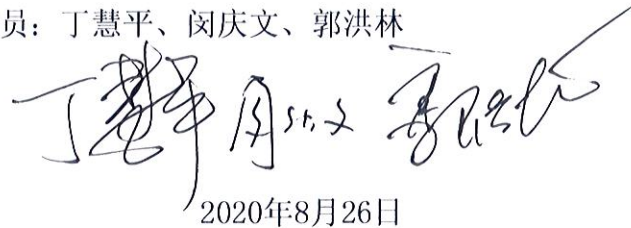 员：丁慧平、闵庆文、郭洪林
丁慧平 闵庆文 郭洪林
2020年8月26日